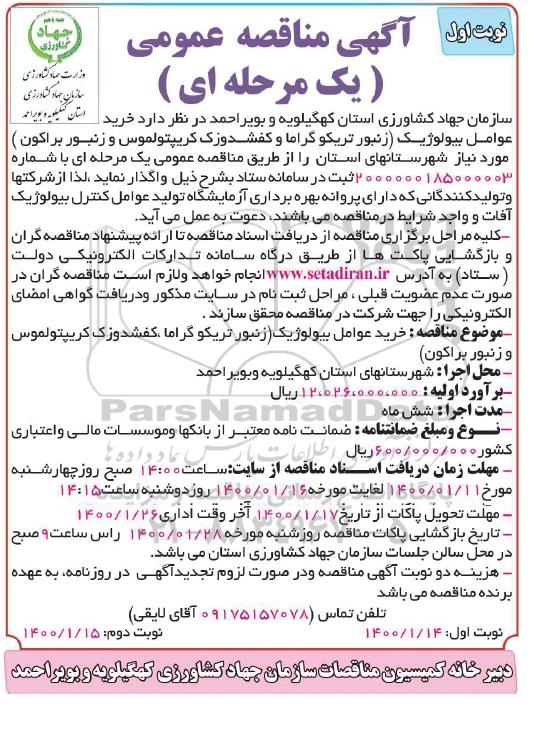 نوبت اول
آگهی مناقصه عمومی
( یک مرحله ای )
جهاد
کشاورزی
وزارت جهاد کشاورزی
سازمان جهاد کشاورزی
استان کهگیلویه و بویراحمد
سازمان جهاد کشاورزی استان کهگیلویه و بویراحمد در نظر دارد خرید
عوامل بیولوژیک (زنبور تریکو گراما و کفشدوزک کریپتولموس و زنبور براکون )
مورد نیاز شهرستانهای استان را از طریق مناقصه عمومی یک مرحله ای با شماره
۲۰۰۰۰۰۰۱۸۵۰۰۰۰۰۳ثبت در سامانه ستاد بشرح ذیل واگذار نماید ،لذا ازشرکتها
وتولیدکنندگانی که دارای پروانه بهره برداری آزمایشگاه تولید عوامل کنترل بیولوژیک
آفات و واجد شرایط درمناقصه می باشند، دعوت به عمل می آید.
-کلیه مراحل برگزاری مناقصه از دریافت اسناد مناقصه تا ارائه پیشنهاد مناقصه گران
و بازگشایی پاکت ها از طریق درگاه سامانه تدارکات الکترونیکی دولت
( ستاد) به آدرس www.setadiran.ir انجام خواهد ولازم است مناقصه گران در
صورت عدم عضویت قبلی ، مراحل ثبت نام در سایت مذکور ودریافت گواهی امضای
الکترونیکی را جهت شرکت در مناقصه محقق سازند .
-موضوع مناقصه : خرید عوامل بیولوژیک(زنبور تریکو گراما ،کفشدوزک کریپتولموس
و زنبور براکون)
- محل اجرا : شهرستانهای استان کهگیلویه وبویراحمد
-برآورد اولیه : ۱۲,۰۲۶,۰۰۰,۰۰۰ ریال
-مدت اجرا : شش ماه
- نوع ومبلغ ضمانتنامه : ضمانت نامه معتبر از بانکها وموسسات مالی واعتباری
کشور۶۰۰/۰۰۰/۰۰۰ریال
- مهلت زمان دریافت اسناد مناقصه از سایت:ساعت۱۴:۰۰ صبح روزچهارشنبه
مورخ۱۴۰۰/۰۱/۱۱ لغایت مورخه۱۴۰۰/۰۱/۱۶ روزدوشنبه ساعت۱۴:۱۵
- مهلت تحویل پاکات از تاریخ۱۴۰۰/۱/۱۷ آخر وقت اداری۱۴۰۰/۱/۲۶
- تاریخ بازگشایی پاکات مناقصه روزشنبه مورخه ۱۴۰۰/۰۱/۲۸ راس ساعت۹ صبح
در محل سالن جلسات سازمان جهاد کشاورزی استان می باشد.
- هزینه دو نوبت آگهی مناقصه ودر صورت لزوم تجدیدآگهی در روزنامه، به عهده
برنده مناقصه می باشد
تلفن تماس (۰۹۱۷۵۱۵۷۰۷۸ آقای لایقی)
نوبت اول: ۱۴۰۰/۱/۱۴ نوبت دوم: ۱۴۰۰/۱/۱۵
دبیر خانه کمیسیون مناقصات سازمان جهاد کشاورزی کهگیلویه و بویراحمد